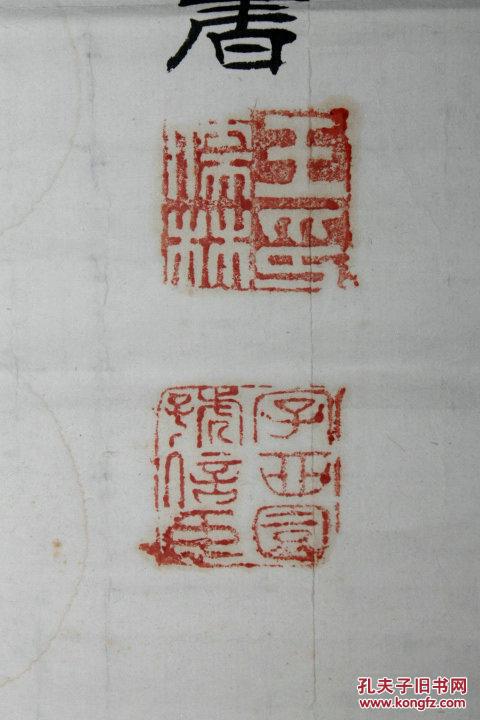 書
王印
林
字西園
號信臣
孔夫子旧书网
www.kongfz.com